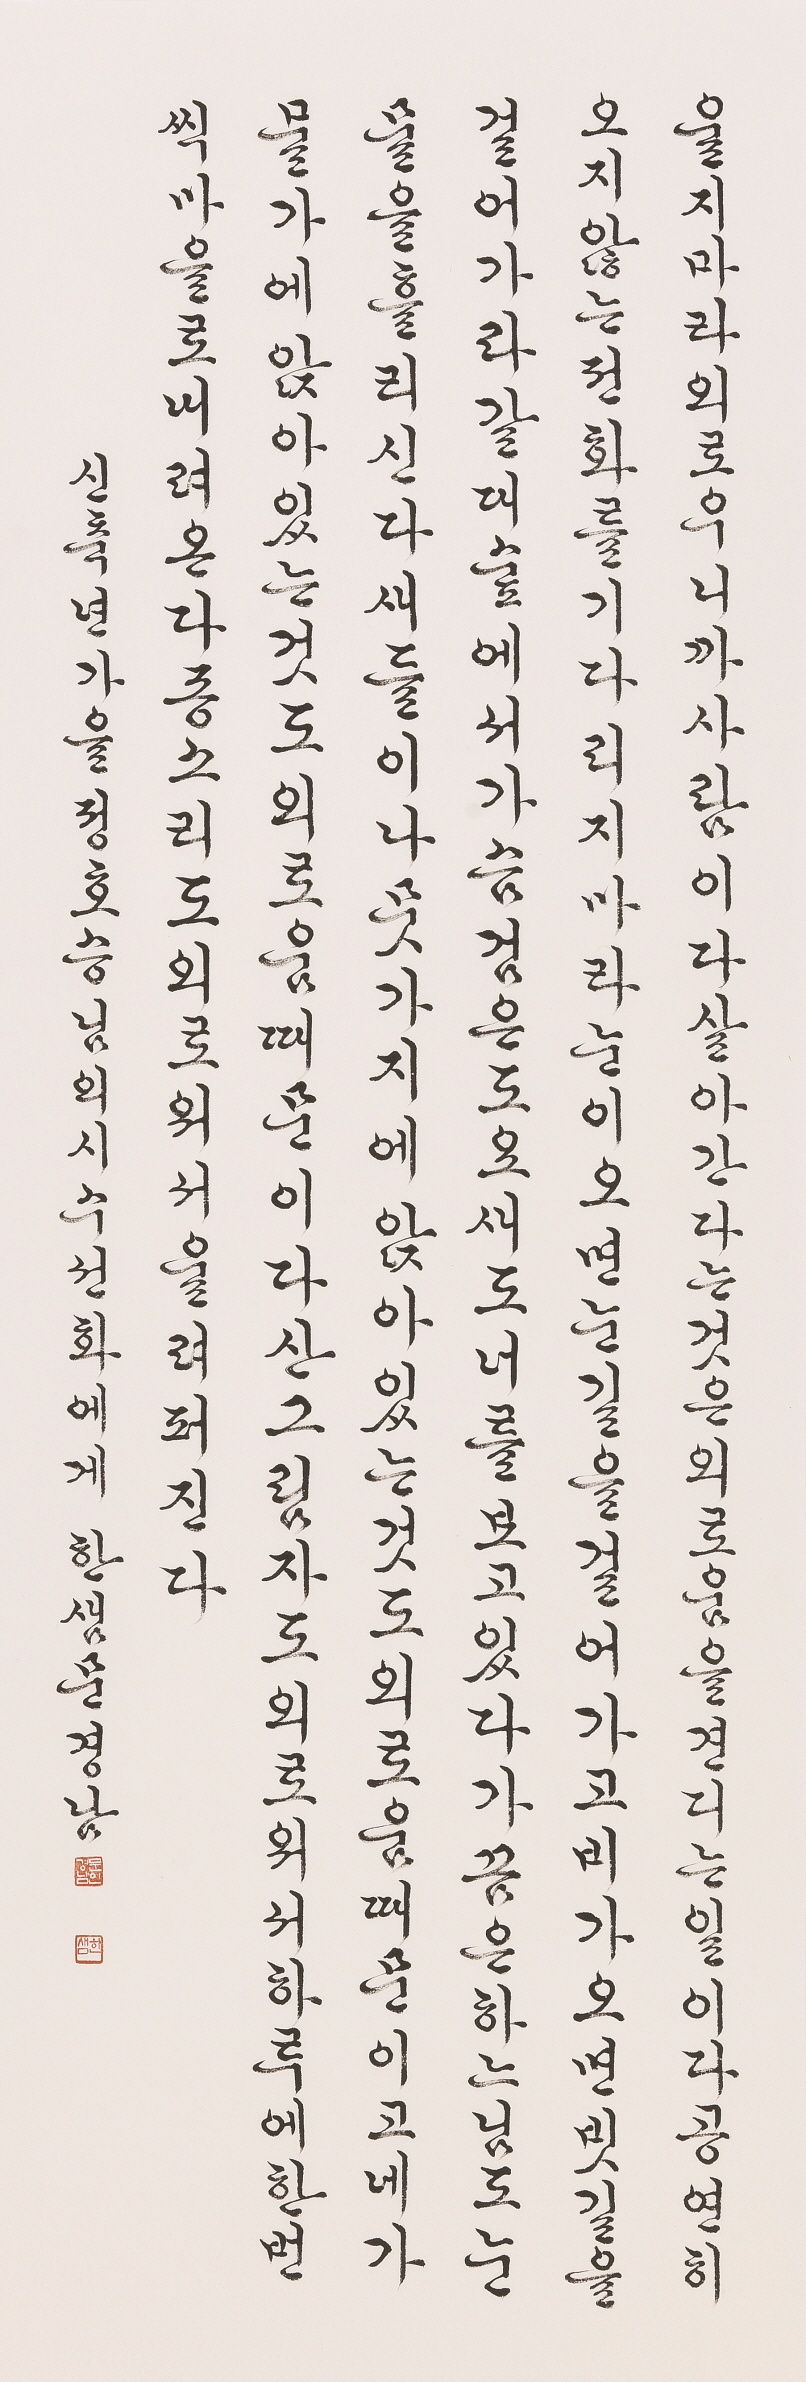 울지마라외로우니까사람이다살아간다는것은외로움을견디는일이다공연히
오지않는전화를기다리지마라눈이오면눈길을걸어가고비가오면빗길을
걸어가라갈대숲에서가슴검은도요새도너를보고있다가끔은하느님도눈
물을흘리신다새들이나뭇가지에앉아있는것도외로움때문이고네가
물가에앉아있는것도외로움때문이다산그림자도외로워서하루에한번
씩마을로내려온다종소리도외로워서울려퍼진다
신축년가을정호승님의시수선화에게 한샘문경남
한샘